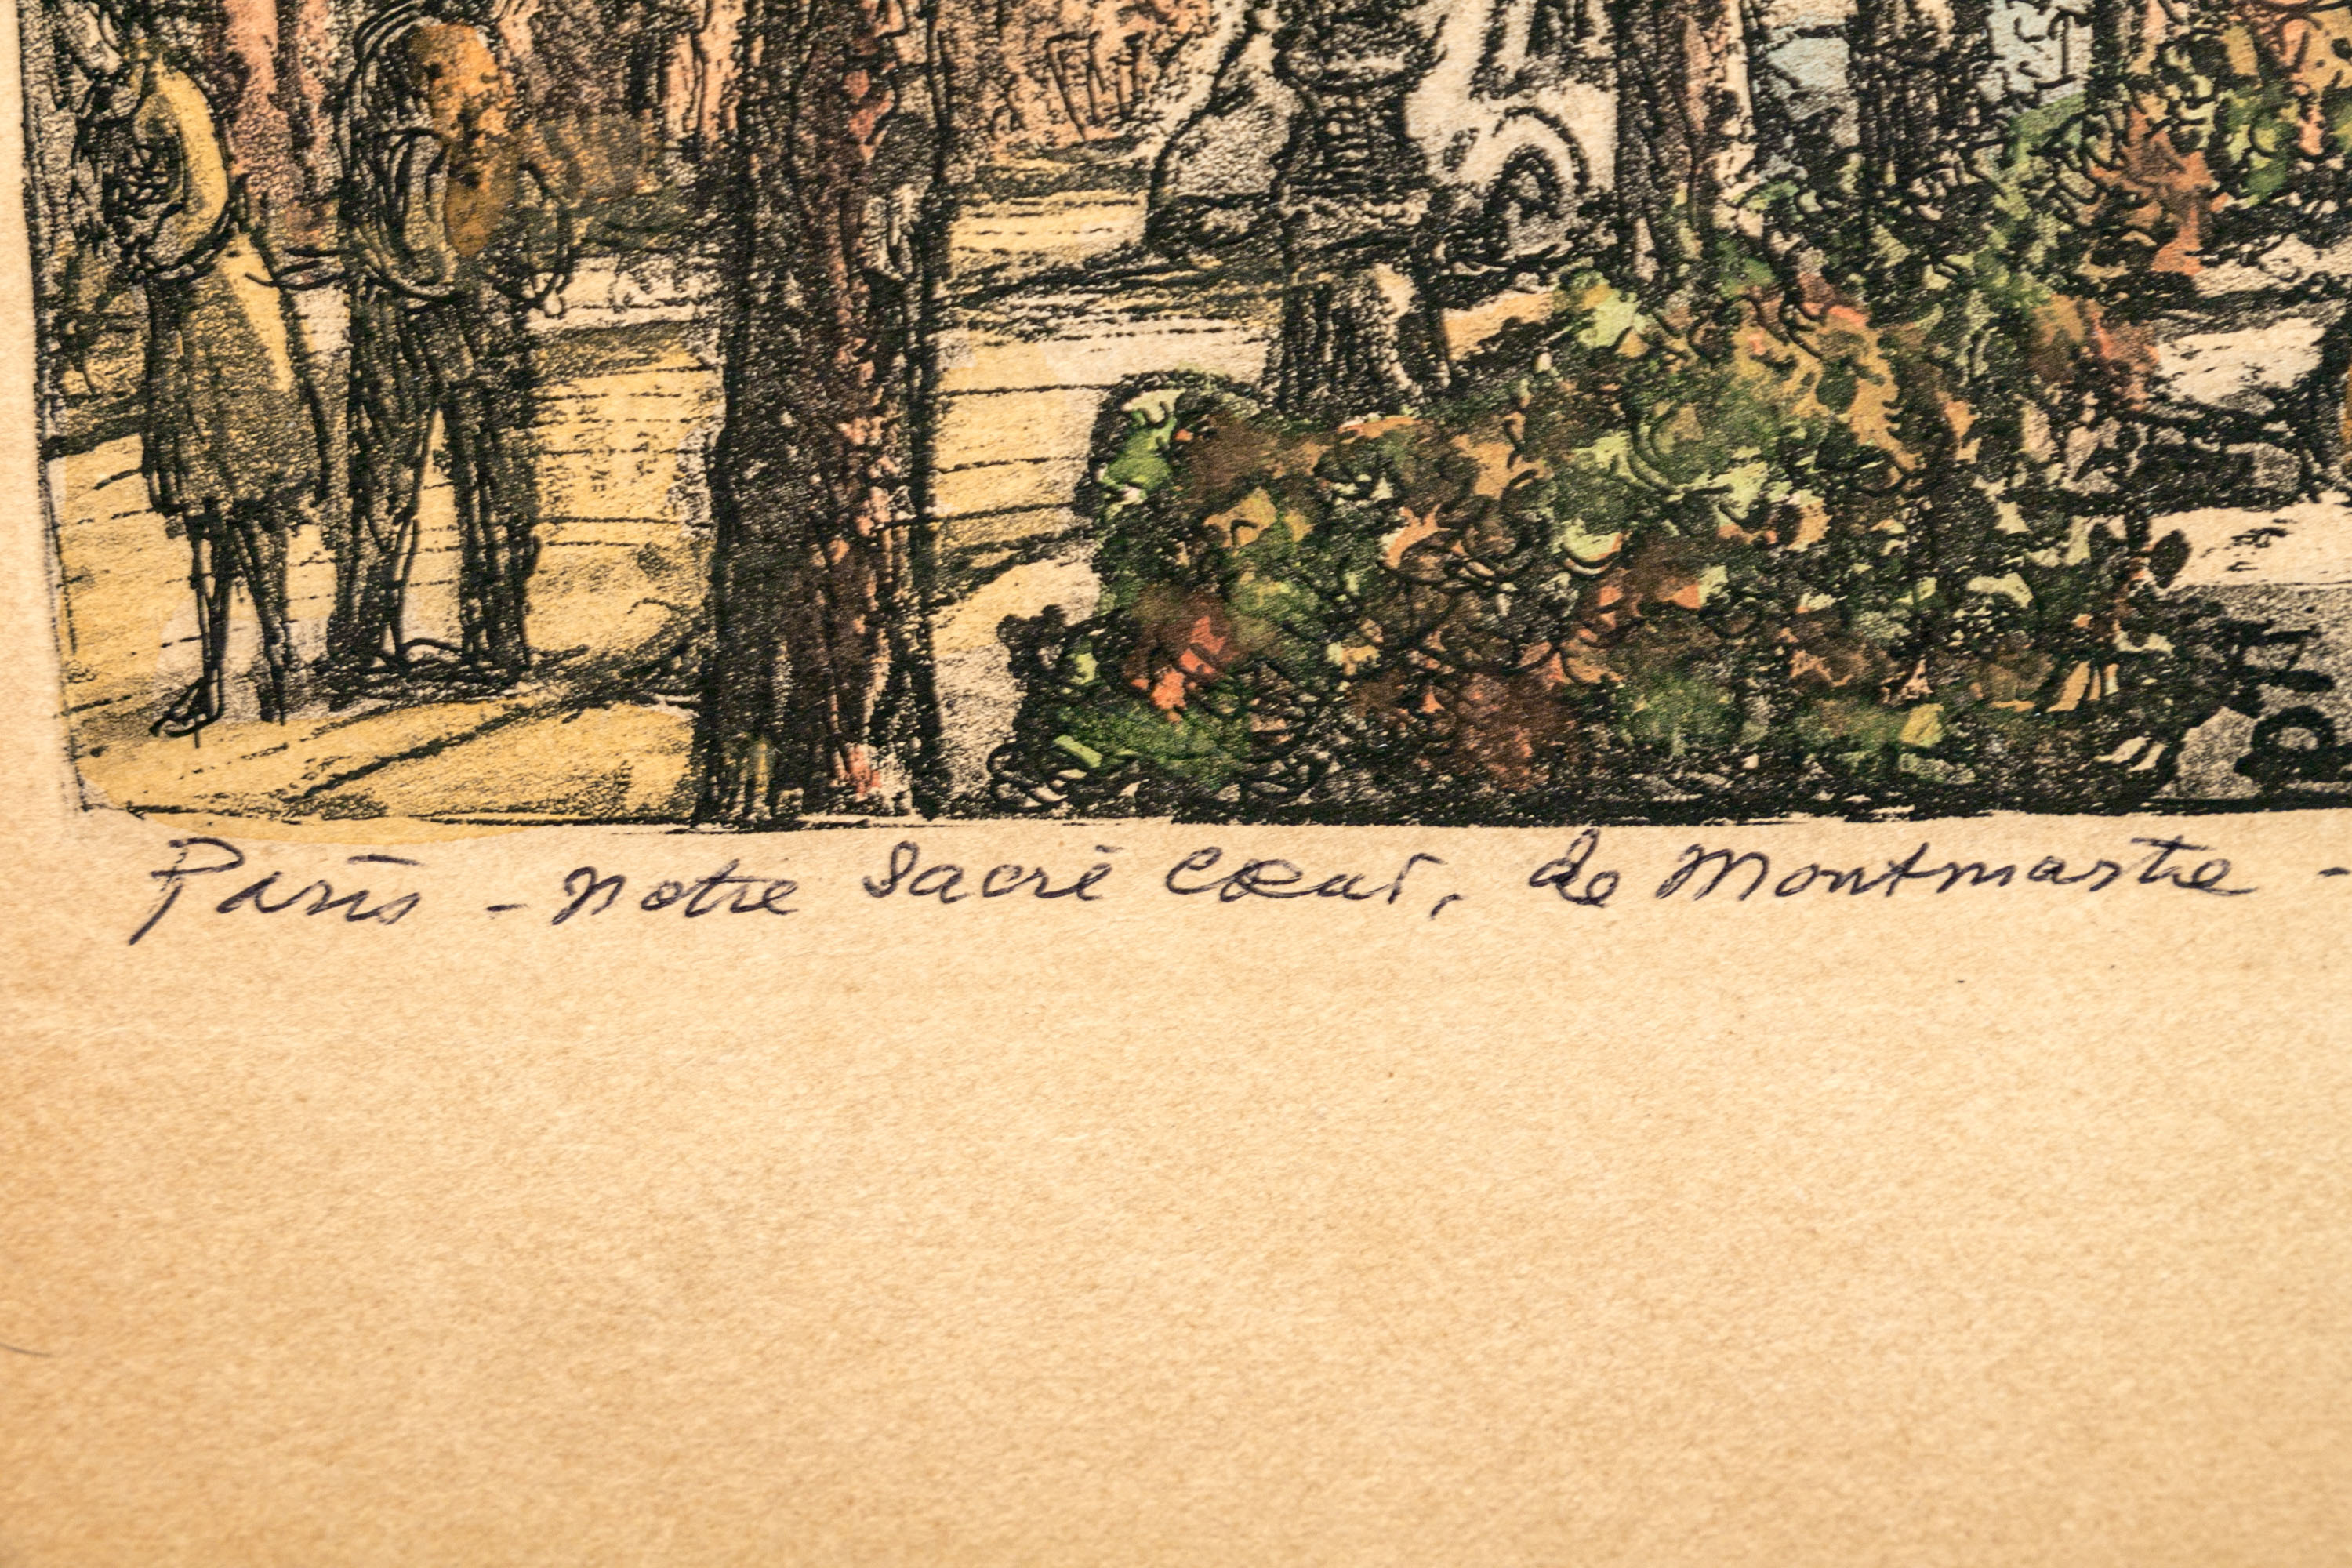 Paris - notre Sacré Cœur, de Montmartre -